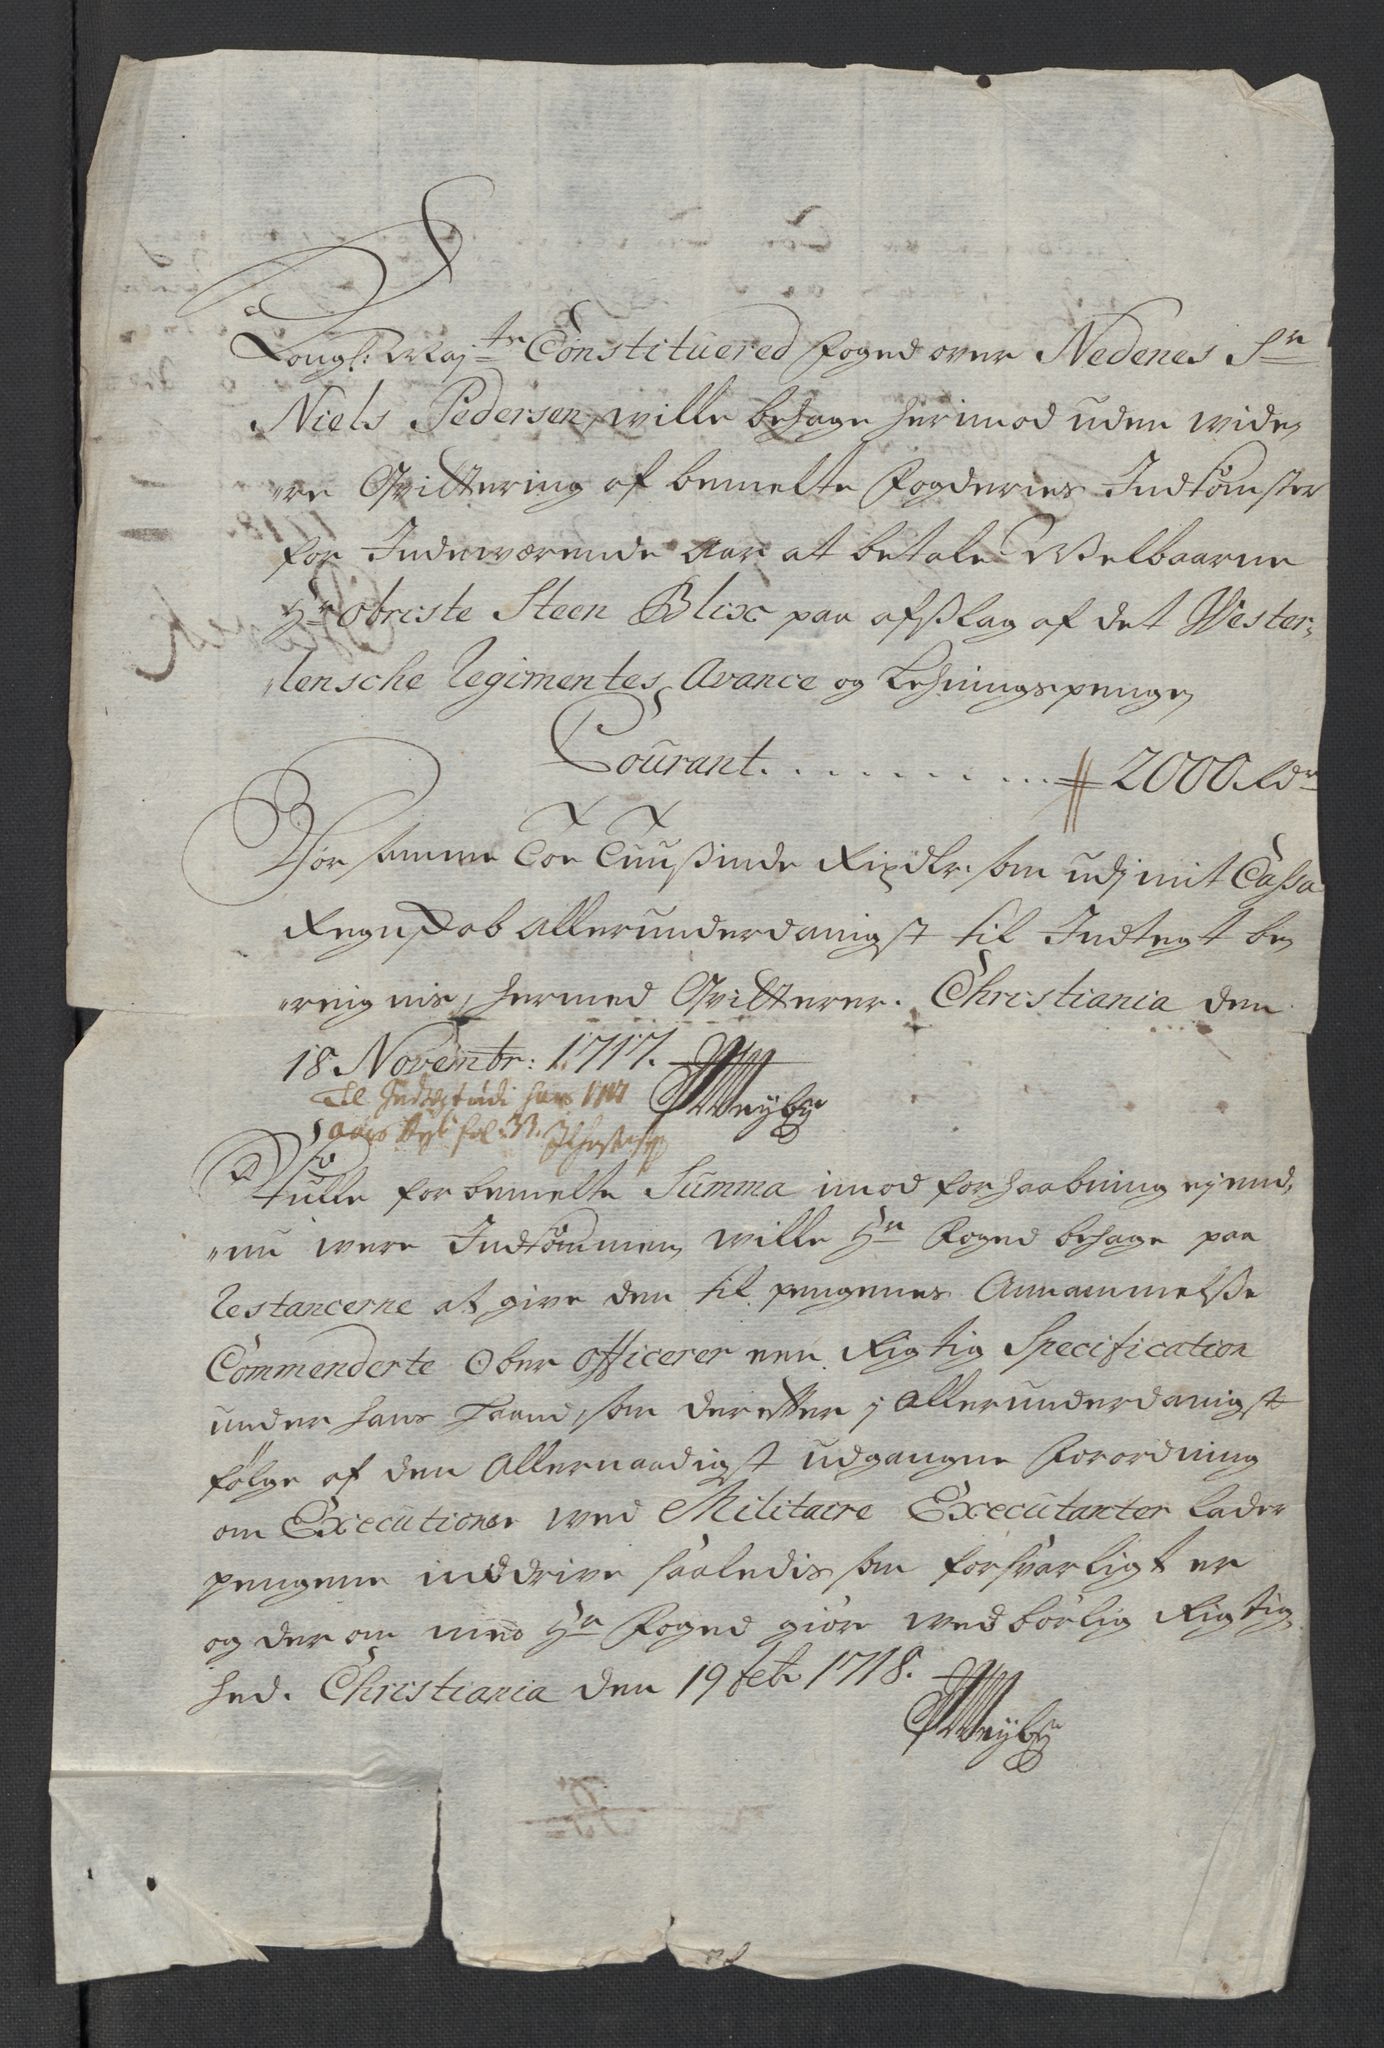 Kongl: Maj:ter Constituered Foged over Nedenes Sr
Niels Pedersen, wille behage herimod uden wide,
„re Qvittering af bemelte Fogderies Indkomster
for Indeværende Aar at betale Welbaarne
Hr Obriste Steen Blix paa afslag af det Wester„
„lensche Regimentes Avance og Lehningspenge,
Courant . . . . . . . . . . 2000 Rdr
For samme Toe Tuusinde Rixdlr: som udj mit Cassa
Regnskab allerunderdanigst til Indtegt be„
„reignis, hermed Qvitterer. Christiania den
18 Novembr: 1717.
Weyby
Til Indtegt udi 1717
aars fol: 33.
Skulle forbemelte Summa imod forhaabning ej end„
„nu were Indkommen, wille Hr Foged behage paa
Restancerne at give den til pengenes Annammelse
Commenderte Ober Officerer een Rigtig Specification
under hans Haand, som derefter j allerunderdanigst
følge af den Allernaadigst udgangne Forordning
om Executioner wed Militaire Executanter lader
pengene inddrive saaledis som forsvarligt er
og der om med Hr Foged giøre wedbørlig Rigtig„
hed. Christiania den 19 feb 1718.
Weyby